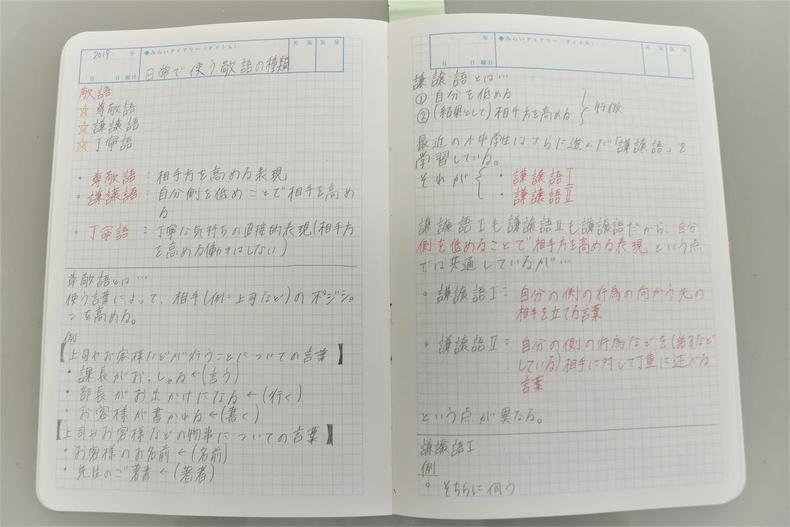 2019 年
月 日 曜日
◆みらいダイアリー(タイトル)
天気 気分
日常で使う敬語の種類
敬語
☆尊敬語
☆謙譲語
☆丁寧語
・尊敬語：相手方を高める表現
・謙譲語：自分側を低めことで相手を高め
る
・丁寧語：丁寧な気持ちの直接的表現(相手方
を高める働きはしない)
尊敬語とは…
使う言葉によって、相手(例:上司など)のポジショ
ンを高める。
例
【上司やお客様などが行うことについての言葉】
・課長がおっしゃる←(言う)
・部長がお出かけになる←(行く)
・お客様が書かれる←(書く)
【上司やお客様などの物事についての言葉】
・お客様のお名前←(名前)
・先生のご著書←(著者)
年
月 日 曜日
◆みらいダイアリー(タイトル)
天気 気分
謙譲語とは…
①自分を低める
②(結果として)相手方を高める 特徴
最近の小中学生はさらに進んだ「謙譲語」を
学習している。
それが ・謙譲語Ⅰ
・謙譲語Ⅱ
謙譲語Ⅰも謙譲語Ⅱも謙譲語だから、自分
側を低めることで相手方を高める表現という点
では共通しているが…
・謙譲語Ⅰ：自分の側の行為の向かう先の
相手を立てる言葉
・謙譲語Ⅱ：自分の側の行為などを(話すなど
している)相手に対して丁重に述べる
言葉
という点が異なる。
謙譲語Ⅰ
例
・そちらに伺う